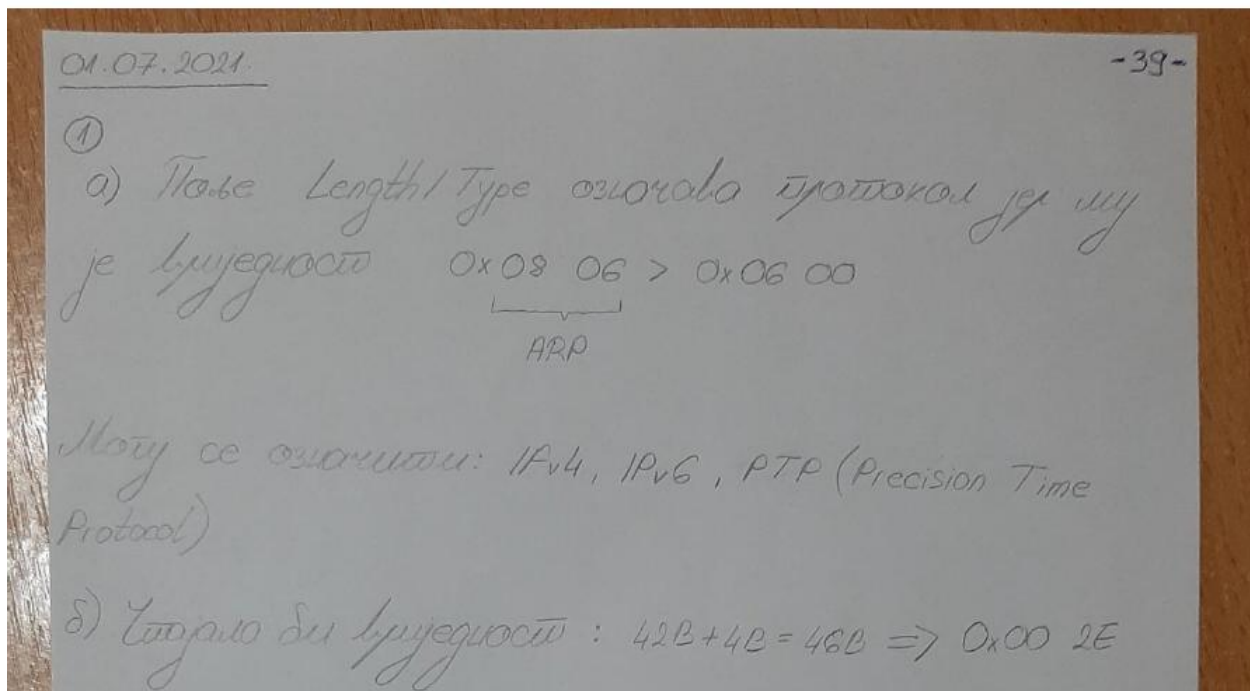 01.07.2021. -39-
1
а) Поље Length/Type означава протокол јер му
је вриједност 0x08 06 > 0x06 00
ARP
Могу се означити: IPv4, IPv6, PTP (Precision Time
Protocol)
б) Стајала би вриједност: 42B+4B=46B => 0x00 2E